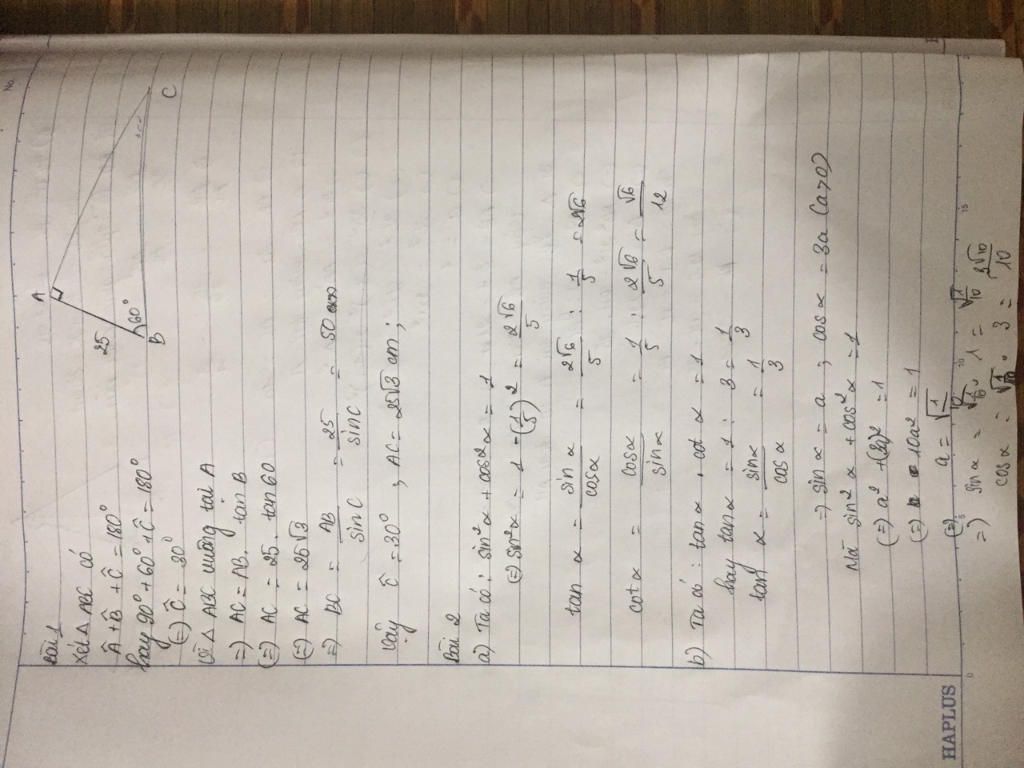 No.
Bài 1
Xét △ ABC có
Â + B̂ + Ĉ = 180°
hay 90° + 60° + Ĉ = 180°
(=) Ĉ = 30°
Vì △ ABC vuông tại A
=) AC = AB. tan B
(=) AC = 25. tan 60
(=) AC = 25√3
=) BC = AB/sin C = 25/sin C = 50
A
25
60°
B
C
Vậy Ĉ = 30° , AC = 25√3 cm ;
Bài 2
a) Ta có : sin²α + cos²α = 1
(=) sin²α = 1 - (1/5)² = 2√6/5
tan α = sin α/cos α = 2√6/5 : 1/5 = 2√6
cot α = cos α/sin α = 1/5 : 2√6/5 = √6/12
b) Ta có : tan α . cot α = 1
hay tan α = 1 : 3 = 1/3
tan α = sin α/cos α = 1/3
=) sin α = a ; cos α = 3a (a>0)
Mà sin²α + cos²α = 1
(=) a² + (3a)² = 1
(=) 10a² = 1
(=) a = √1/10
=) sin α = . 1 = √1/10
cos α = . 3 = 3√10/10
HAPLUS
0
5
10
15